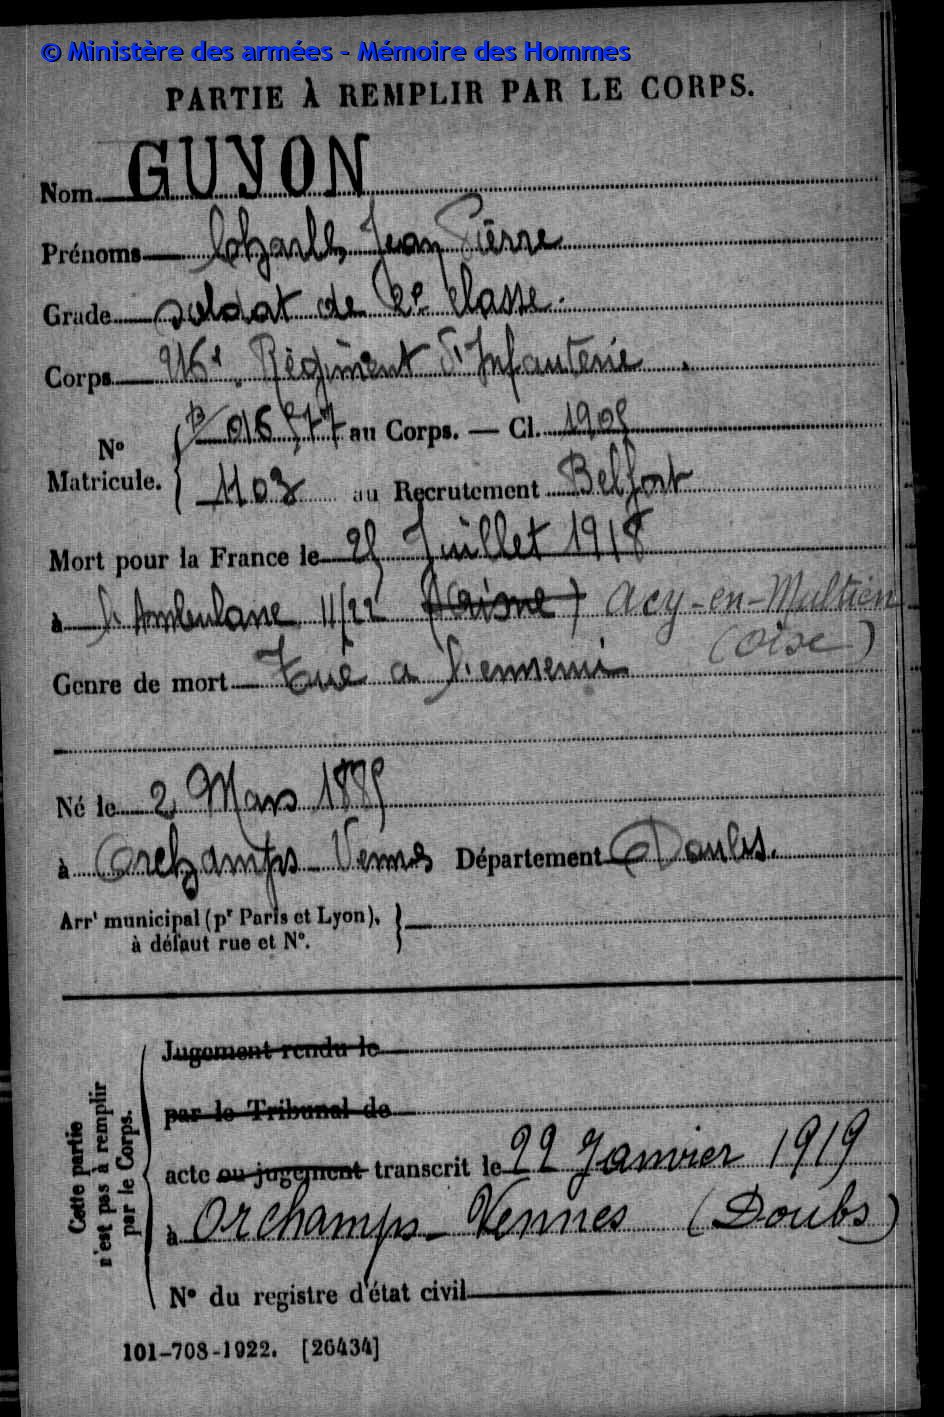 © Ministère des armées - Mémoire des Hommes
PARTIE À REMPLIR PAR LE CORPS.
Nom GUYON
Prénoms Charles Jean Pierre
Grade soldat de 2e classe.
Corps 216e Régiment d'Infanterie.
016577 au Corps. — Cl. 1905
No
Matricule.
1103 au Recrutement Belfort
Mort pour la France le 25 Juillet 1918
à l'Ambulance 11/22 (Aisne) Acy-en-Multien
(Oise)
Genre de mort Tué à l'ennemi
Né le 2 Mars 1885
à Orchamps-Vennes Département Doubs.
Arrt municipal (pr Paris et Lyon),
à défaut rue et No.
Jugement rendu le
par le Tribunal de
acte ou jugement transcrit le 22 Janvier 1919
à Orchamps-Vennes (Doubs)
No du registre d'état civil
Cette partie
n'est pas à remplir
par le Corps.
101-708-1922. [26434]